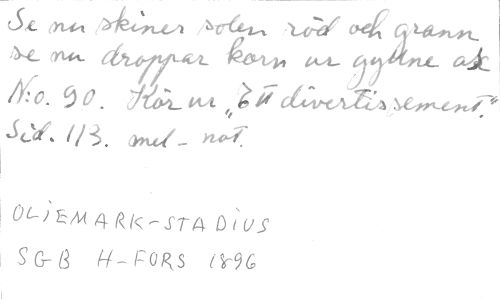 Se nu skiner solen röd och grann
se nu droppar korn ur gyllne ax
N:o. 90. Kör ur „Ett divertissement."
Sid. 113. mel – not.
OLIEMARK-STADIUS
SGB H-FORS 1896